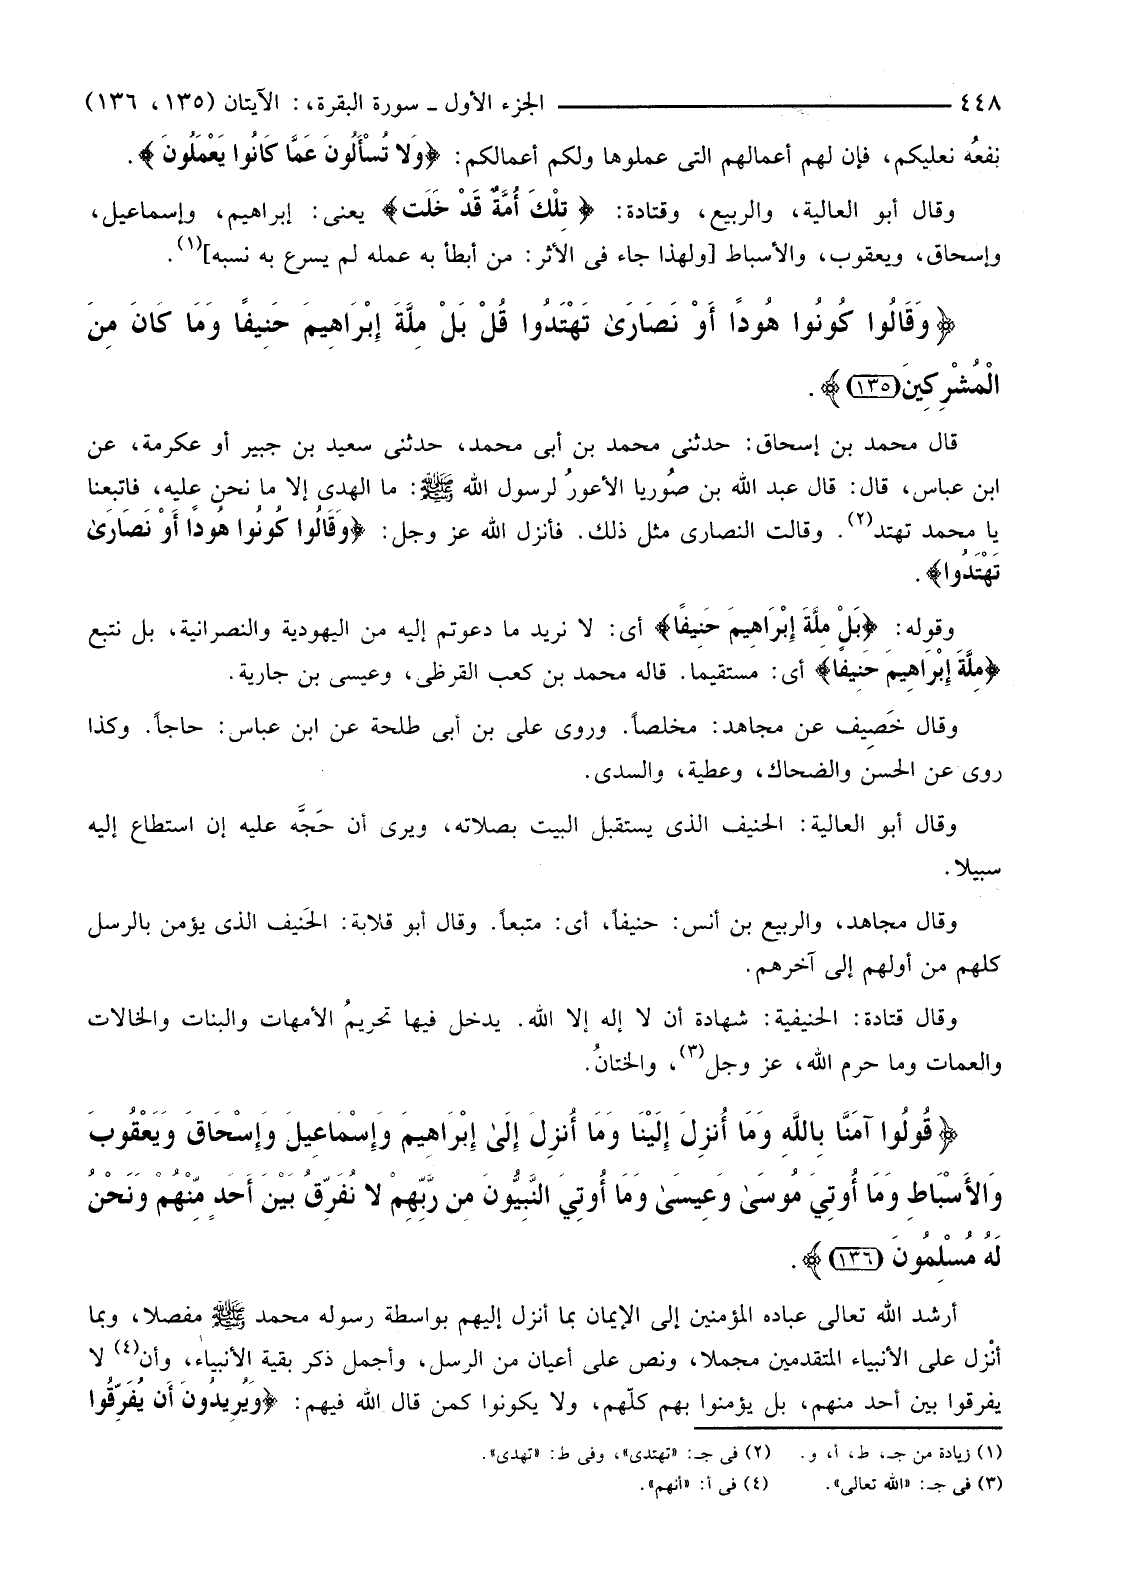 ٤٤٨ الجزء الأول ـ سورة البقرة، : الآيتان (١٣٥، ١٣٦)
نفعُه نعليكم، فإن لهم أعمالهم التى عملوها ولكم أعمالكم: ﴿وَلا تُسْأَلُونَ عَمَّا كَانُوا يَعْمَلُونَ﴾.
وقال أبو العالية، والربيع، وقتادة: ﴿تِلْكَ أُمَّةٌ قَدْ خَلَت﴾ يعنى: إبراهيم، وإسماعيل،
وإسحاق، ويعقوب، والأسباط [ولهذا جاء فى الأثر: من أبطأ به عمله لم يسرع به نسبه](١).
﴿وَقَالُوا كُونُوا هُودًا أَوْ نَصَارَىٰ تَهْتَدُوا قُلْ بَلْ مِلَّةَ إِبْرَاهِيمَ حَنِيفًا وَمَا كَانَ مِنَ
الْمُشْرِكِينَ (١٣٥)﴾.
قال محمد بن إسحاق: حدثنى محمد بن أبى محمد، حدثنى سعيد بن جبير أو عكرمة، عن
ابن عباس، قال: قال عبد الله بن صُوريا الأعورُ لرسول الله ﷺ: ما الهدى إلا ما نحن عليه، فاتبعنا
يا محمد تهتد(٢). وقالت النصارى مثل ذلك. فأنزل الله عز وجل: ﴿وَقَالُوا كُونُوا هُودًا أَوْ نَصَارَىٰ
تَهْتَدُوا﴾.
وقوله: ﴿بَلْ مِلَّةَ إِبْرَاهِيمَ حَنِيفًا﴾ أى: لا نريد ما دعوتم إليه من اليهودية والنصرانية، بل نتبع
﴿مِلَّةَ إِبْرَاهِيمَ حَنِيفًا﴾ أى: مستقيما. قاله محمد بن كعب القرظى، وعيسى بن جارية.
وقال خَصِيف عن مجاهد: مخلصاً. وروى على بن أبى طلحة عن ابن عباس: حاجاً. وكذا
روى عن الحسن والضحاك، وعطية، والسدى.
وقال أبو العالية: الحنيف الذى يستقبل البيت بصلاته، ويرى أن حَجَّه عليه إن استطاع إليه
سبيلا.
وقال مجاهد، والربيع بن أنس: حنيفاً، أى: متبعاً. وقال أبو قلابة: الحَنيف الذى يؤمن بالرسل
كلهم من أولهم إلى آخرهم.
وقال قتادة: الحنيفية: شهادة أن لا إله إلا الله. يدخل فيها تحريمُ الأمهات والبنات والخالات
والعمات وما حرم الله، عز وجل(٣)، والختانُ.
﴿قُولُوا آمَنَّا بِاللَّهِ وَمَا أُنزِلَ إِلَيْنَا وَمَا أُنزِلَ إِلَىٰ إِبْرَاهِيمَ وَإِسْمَاعِيلَ وَإِسْحَاقَ وَيَعْقُوبَ
وَالأَسْبَاطِ وَمَا أُوتِيَ مُوسَىٰ وَعِيسَىٰ وَمَا أُوتِيَ النَّبِيُّونَ مِن رَّبِّهِمْ لا نُفَرِّقُ بَيْنَ أَحَدٍ مِّنْهُمْ وَنَحْنُ
لَهُ مُسْلِمُونَ (١٣٦)﴾.
أرشد الله تعالى عباده المؤمنين إلى الإيمان بما أنزل إليهم بواسطة رسوله محمد ﷺ مفصلا، وبما
أنْزل على الأنبياء المتقدمين مجملا، ونص على أعيان من الرسل، وأجمل ذكر بقية الأنبياء، وأن(٤) لا
يفرقوا بين أحد منهم، بل يؤمنوا بهم كلّهم، ولا يكونوا كمن قال الله فيهم: ﴿وَيُرِيدُونَ أَن يُفَرِّقُوا
(١) زيادة من جـ، ط، أ، و. (٢) فى جـ: «تهتدى»، وفى ط: «تهدى».
(٣) فى جـ: «الله تعالى». (٤) فى أ: «أنهم».